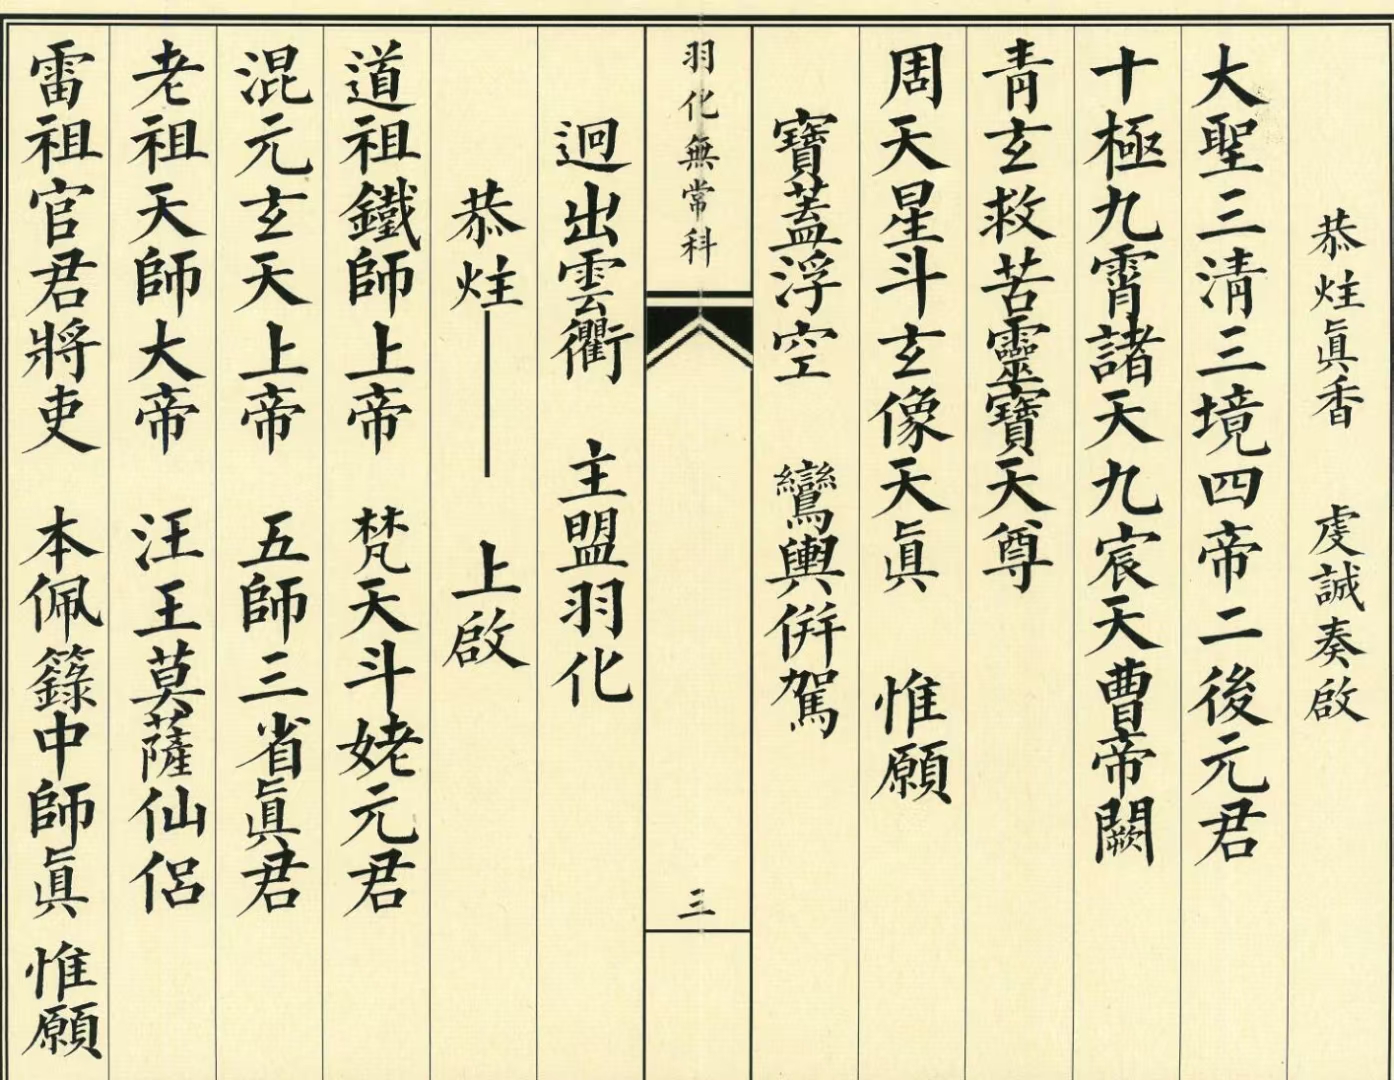 恭炷眞香 虔誠奏啟
大聖三清三境四帝二後元君
十極九霄諸天九宸天曹帝闕
青玄救苦靈寶天尊
周天星斗玄像天眞 惟願
寶蓋浮空 鸞輿併駕
羽化無常科
三
迥出雲衢 主盟羽化
恭炷——上啟
道祖鐵師上帝 梵天斗姥元君
混元玄天上帝 五師三省眞君
老祖天師大帝 汪王莫薩仙侶
雷祖官君將吏 本佩籙中師眞 惟願